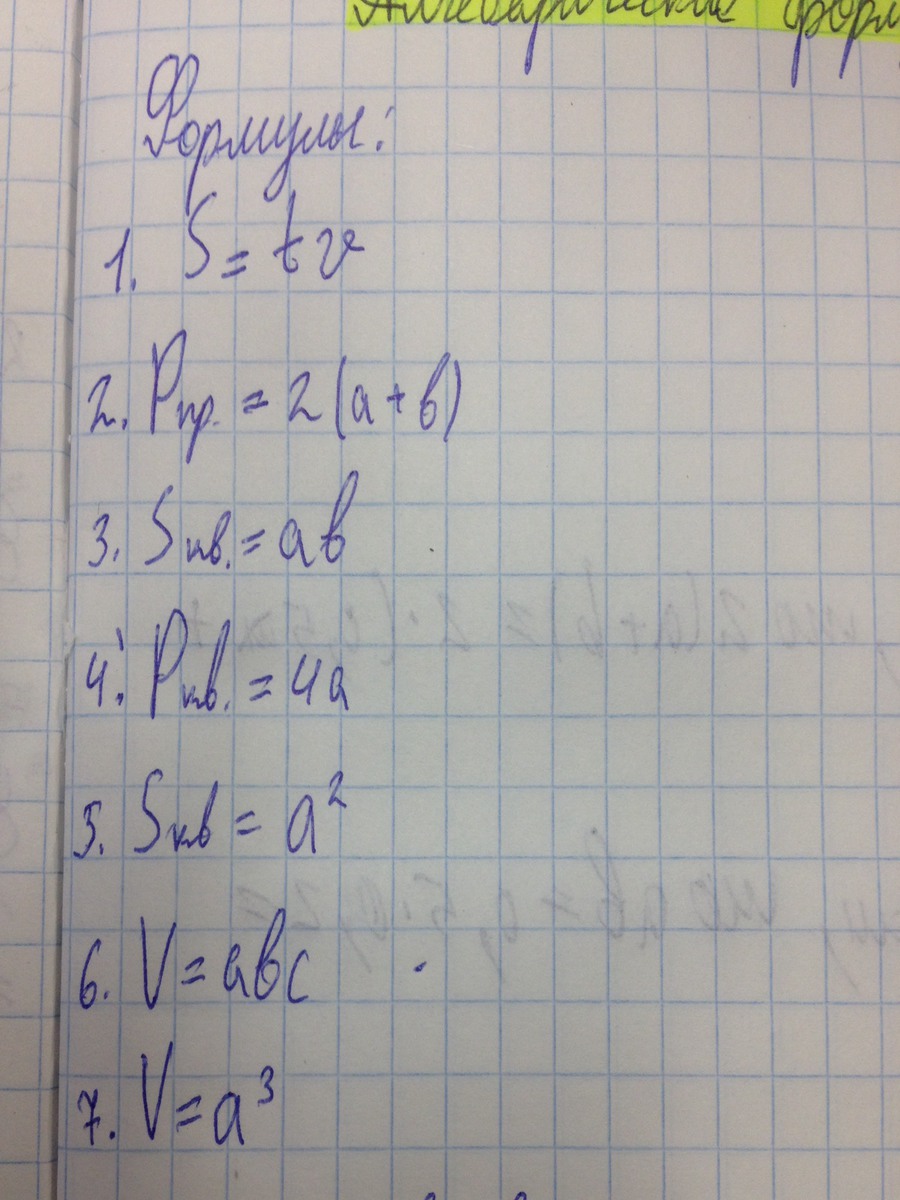 Алгебраические форм
Формулы:
1. S = tv
2. Pпр. = 2(a+b)
3. Sкв. = ab
4. Pкв. = 4a
5. Sкв = a²
6. V = abc
7. V = a³